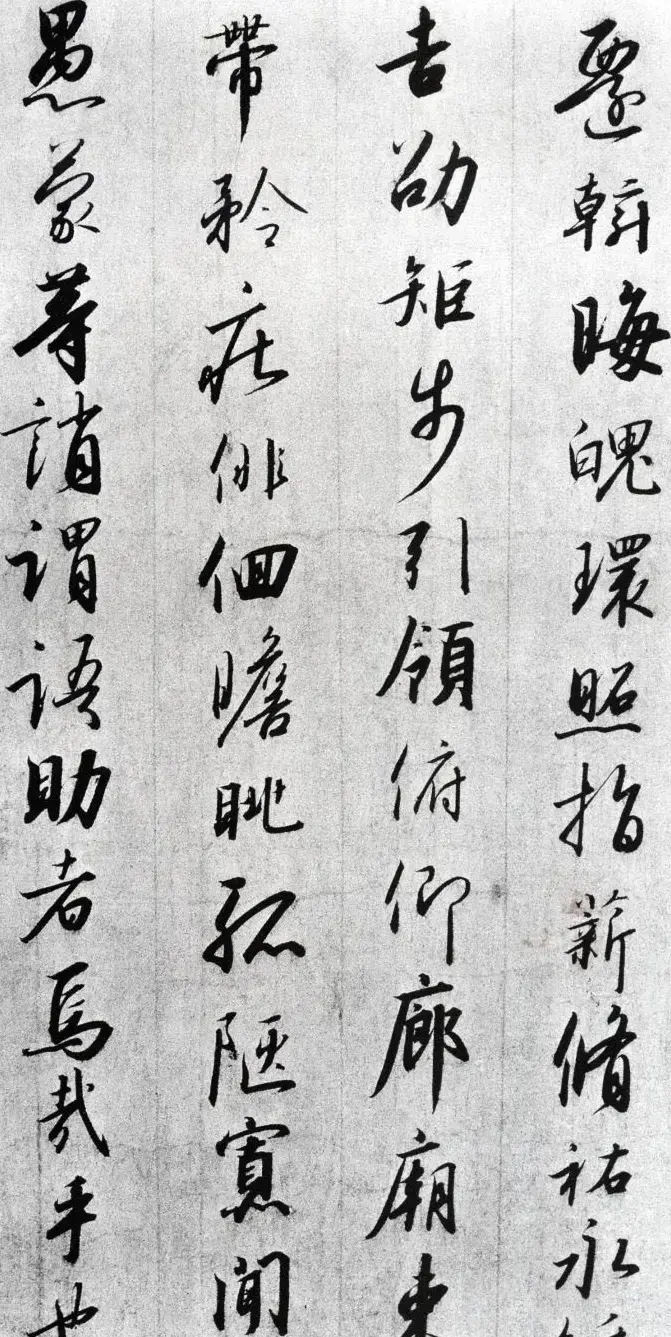 還斡晦魄環照指薪脩祐永
吉劭矩步引領俯仰廊廟束
帶矜莊俳佪瞻眺孤陋寡聞
愚蒙等誚謂語助者焉哉乎也